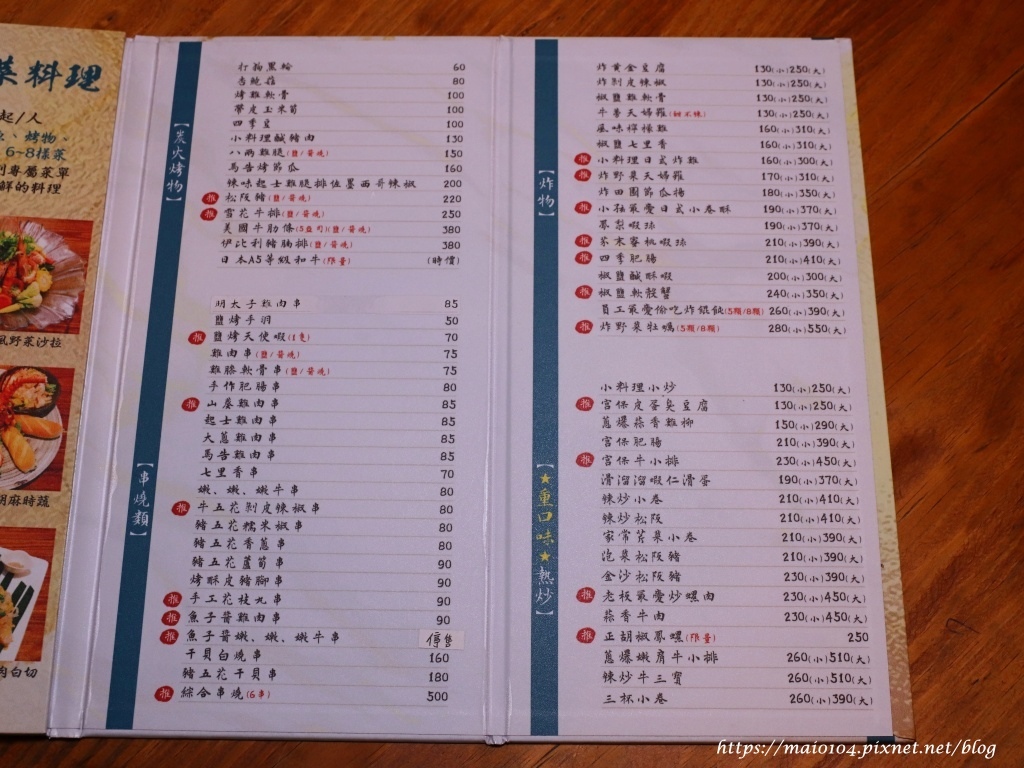 菜料理
起/人
、烤物、
6~8樣菜
專屬菜單
鮮的料理
風野菜沙拉
胡麻時蔬
肉白切
【炭火烤物】
打拋黑蛤 60
杏鮑菇 80
烤雞軟骨 100
帶皮玉米筍 100
四季豆 100
小料理鹹豬肉 130
八兩雞腿(鹽/醬燒) 150
馬告烤節瓜 160
辣味起士雞腿排佐墨西哥辣椒 200
推 松阪豬(鹽/醬燒) 220
推 雪花牛排(鹽/醬燒) 250
美國牛肋條(5盎司)(鹽/醬燒) 380
伊比利豬腩排(鹽/醬燒) 380
日本A5等級和牛(限量) (時價)
【串燒類】
明太子雞肉串 85
鹽烤手羽 50
推 鹽烤天使蝦(1隻) 70
雞肉串(鹽/醬燒) 75
雞膝軟骨串(鹽/醬燒) 75
手作肥腸串 80
推 山葵雞肉串 85
起士雞肉串 85
大蔥雞肉串 85
馬告雞肉串 85
七里香串 70
嫩、嫩、嫩牛串 80
推 牛五花剝皮辣椒串 80
豬五花糯米椒串 80
豬五花香蔥串 80
豬五花蘆筍串 90
烤酥皮豬腳串 90
推 手工花枝丸串 90
推 魚子醬雞肉串 90
推 魚子醬嫩、嫩、嫩牛串 停售
干貝白燒串 160
豬五花干貝串 180
推 綜合串燒(6串) 500
【炸物】
炸黃金豆腐 130(小)250(大)
炸剝皮辣椒 130(小)250(大)
椒鹽雞軟骨 130(小)250(大)
牛蒡天婦羅(甜不辣) 130(小)250(大)
風味檸檬雞 160(小)310(大)
椒鹽七里香 160(小)310(大)
推 小料理日式炸雞 160(小)300(大)
推 炸野菜天婦羅 170(小)310(大)
炸田園節瓜楊 180(小)350(大)
推 小孩最愛日式小卷酥 190(小)370(大)
鳳梨蝦球 190(小)370(大)
推 芥末蜜桃蝦球 210(小)390(大)
推 四季肥腸 210(小)410(大)
椒鹽鹹酥蝦 200(小)300(大)
推 椒鹽軟殼蟹 240(小)350(大)
員工最愛偷吃炸餛飩(5顆/8顆) 260(小)390(大)
推 炸野菜牡蠣(5顆/8顆) 280(小)550(大)
【★重口味★熱炒】
小料理小炒 130(小)250(大)
推 宮保皮蛋臭豆腐 130(小)250(大)
蔥爆蒜香雞柳 150(小)290(大)
宮保肥腸 210(小)390(大)
推 宮保牛小排 230(小)450(大)
滑溜溜蝦仁滑蛋 190(小)370(大)
辣炒小卷 210(小)410(大)
辣炒松阪 210(小)410(大)
家常芹菜小卷 210(小)390(大)
泡菜松阪豬 210(小)390(大)
金沙松阪豬 230(小)390(大)
推 老板最愛炒螺肉 230(小)450(大)
蒜香牛肉 230(小)450(大)
推 正胡椒鳳螺(限量) 250
蔥爆嫩肩牛小排 260(小)510(大)
辣炒牛三寶 260(小)510(大)
三杯小卷 260(小)390(大)
https://maio104.pixnet.net/blog